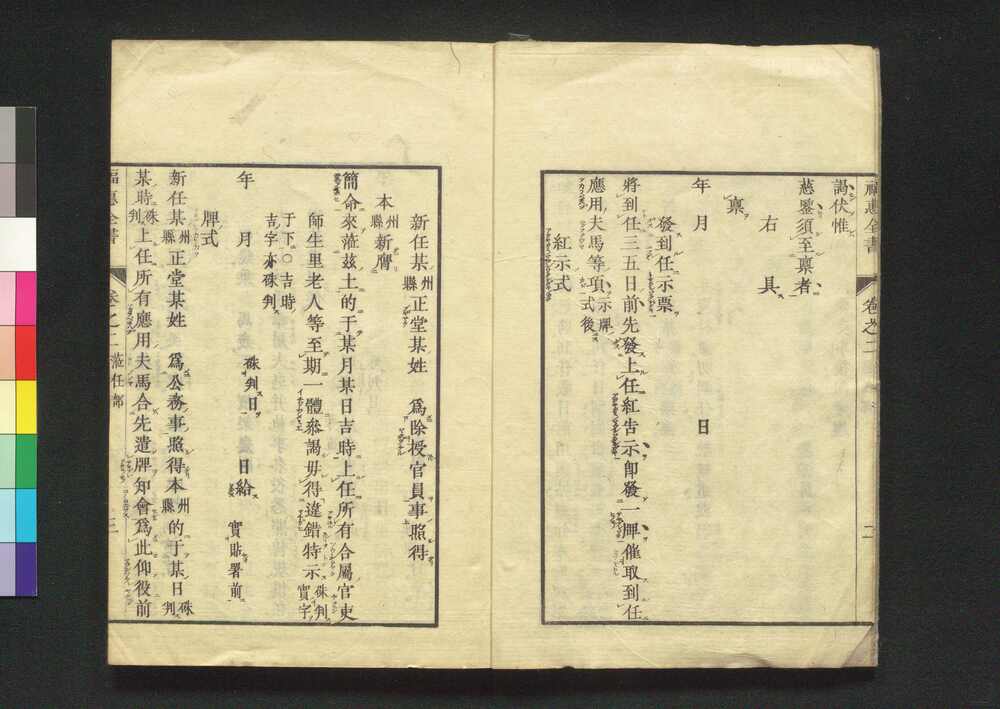 福惠全書 卷之二 二
謁伏惟
慈鑒須至稟者
右具
稟
年月 日
發到任示票
將到任三五日前先發上任紅告示卽發一牌催取到任
應用夫馬等項示牌式後
紅示式
新任某州縣正堂某姓 爲除授官員事照得
本州縣新膺
簡命來蒞茲土的于某月某日吉時上任所有合屬官吏
師生里老人等至期一體參謁毋得違錯特示硃判實字
于下〇吉時吉字亦硃判
年 月 硃判日 日給 實貼署前
牌式
新任某州縣正堂某姓 爲公務事照得本州縣的于某日硃判
某時硃判上任所有應用夫馬合先遣牌知會爲此仰役前
福惠全書 卷之二 蒞任部 三